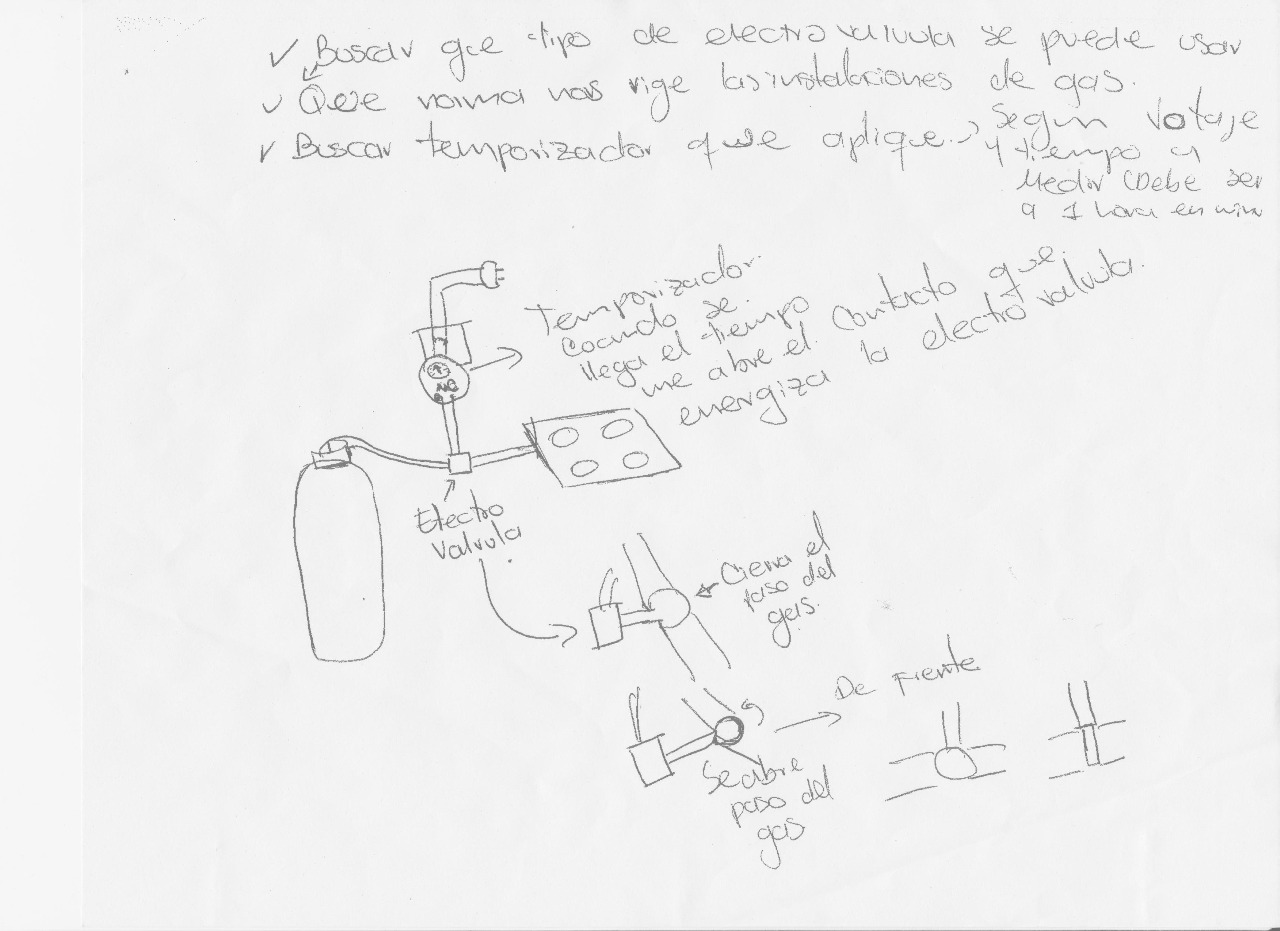 ✓ Buscar que tipo de electrovalvula se puede usar
✓ Que norma nos rige las instalaciones de gas.
✓ Buscar temporizador que aplique → Segun Votaje
y tiempo a
Medir (Debe ser
a 1 hora en min
Temporizador
Coando se
llega el tiempo
me abre el contacto que
energiza la electro valvula.
NC
Electro
Valvula
Cierra el
paso del
gas.
De Frente
Se abre
paso del
gas